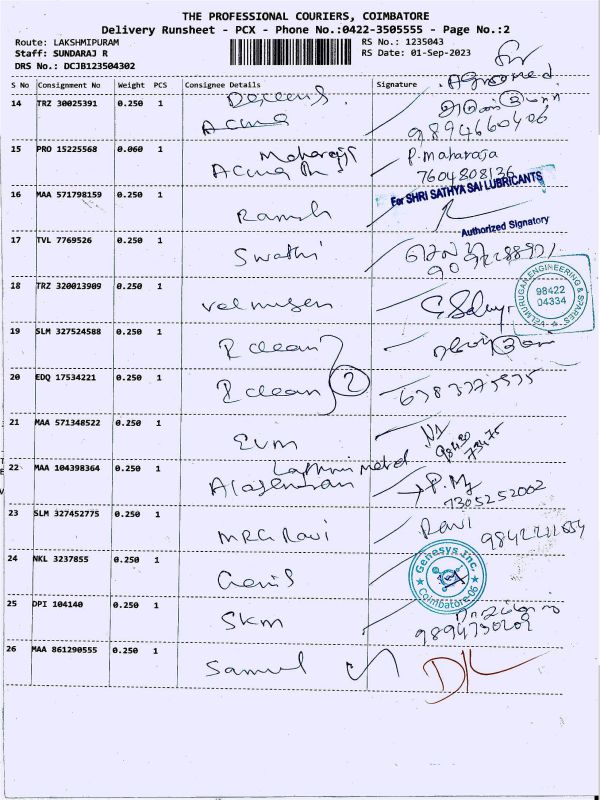 THE PROFESSIONAL COURIERS, COIMBATORE
Delivery Runsheet - PCX - Phone No.:0422-3505555 - Page No.:2
Route: LAKSHMIPURAM RS No.: 1235043
Staff: SUNDARAJ R RS Date: 01-Sep-2023
DRS No.: DCJB123504302
S No Consignment No Weight PCS Consignee Details Signature
14 TRZ 30025391 0.250 1
Acma 9894660406
15 PRO 15225568 0.060 1 Maharaja P. maharaja
Acma 7604808136
For SHRI SATHYA SAI LUBRICANTS
16 MAA 571798159 0.250 1 Ramesh
Authorized Signatory
17 TVL 7769526 0.250 1 Swathi
18 TRZ 320013909 0.250 1 velmurgen
VELMURUGAN ENGINEERING & SPARES
98422
04334
19 SLM 327524588 0.250 1 R clean
20 EDQ 17534221 0.250 1 R clean 2
21 MAA 571348522 0.250 1 EVM
98430
73475
22 MAA 104398364 0.250 1 Laxmi metal
P. My
7305252002
23 SLM 327452775 0.250 1 MRG Ravi Ravi
24 NKL 3237855 0.250 1
Genesys Inc.
Coimbatore-06
25 DPI 104140 0.250 1 SKM
9894730202
26 MAA 861290555 0.250 1 Samuel